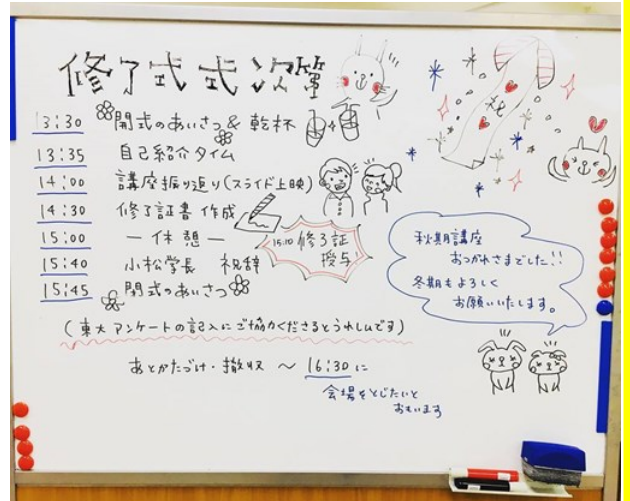 修了式 式次第
13:30 開式のあいさつ & 乾杯
13:35 自己紹介タイム
14:00 講座振り返り(スライド上映)
14:30 修了証書 作成
15:00 ー休憩ー
15:10 修了証授与!
15:40 小松学長 祝辞
15:45 閉式のあいさつ
(東大アンケートの記入にご協力くださるとうれしいです)
あとかたづけ・撤収 〜 16:30 に
会場をとじたいと
おもいます
祝
秋期講座
おつかれさまでした!!
冬期もよろしく
お願いいたします。